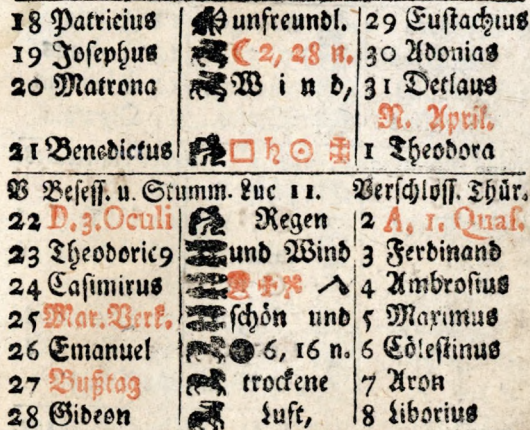 18 Patricius unfreundl. 29 Eustachius
19 Josephus ☾ 2, 28 n. 30 Adonias
20 Matrona Wind, 31 Detlaus
N. April.
21 Benedictus □ ♄ ☉ 1 Theodora
V Besess. u. Stumm. Luc 11. Verschloss. Thür.
22 D. 3. Oculi Regen 2 A. 1. Quas.
23 Theodoric9 und Wind 3 Ferdinand
24 Casimirus 4 Ambrosius
25 Mar. Verk. schön und 5 Maximus
26 Emanuel ● 6, 16 n. 6 Cölestinus
27 Bußtag trockene 7 Aron
28 Gideon Luft, 8 Liborius